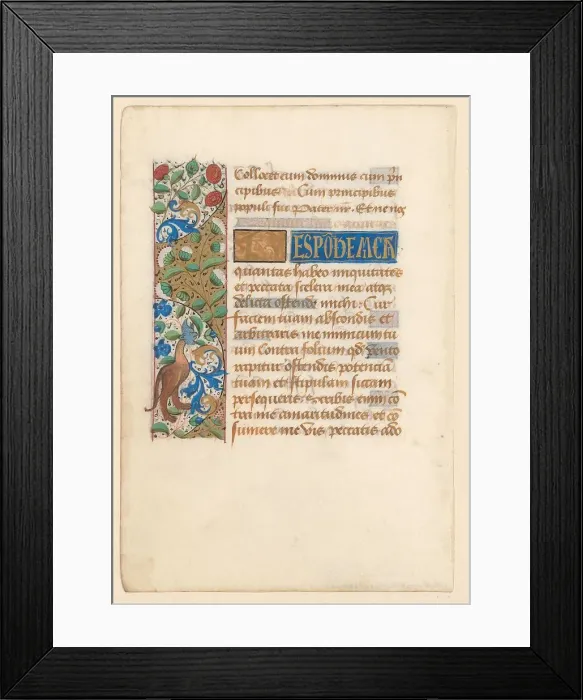 Collocet eum dominus cum pri
cipibus Cum principibus
populi sui Pater nr. Et ne nos
ESPŌDE MCH
quantas habeo iniquitates
et peccata scelera mea atqz
delicta ostende michi. Cur
faciem tuam abscondis et
arbitraris me inimicum tu
um Contra folium qd vento
rapitur ostendis potencia
tuam et stipulam siccam
persequeris Scribis enim cō
tra me amaritudines et cō
sumere me vis peccatis ado